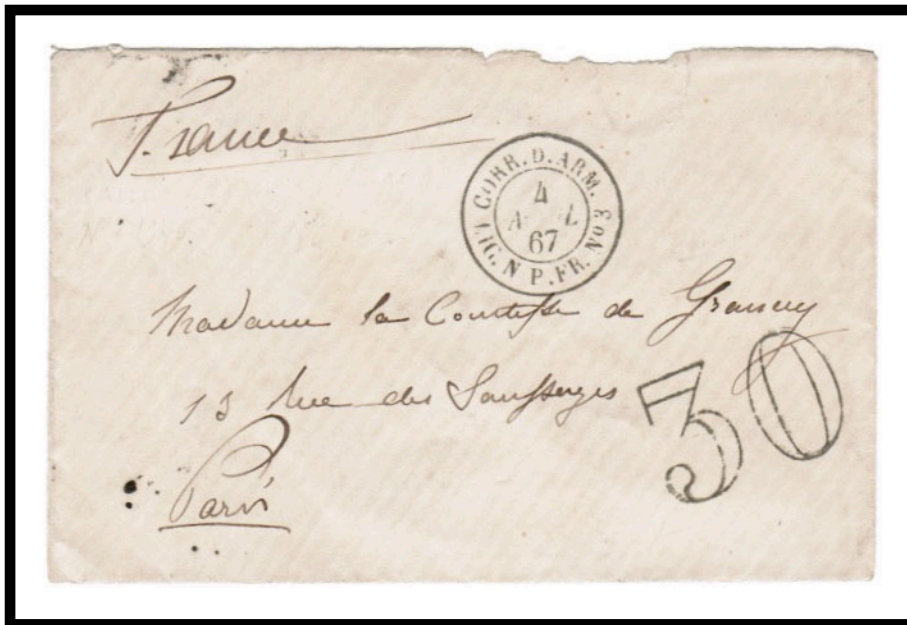 France
CORR. D. ARM.
LIG. N P. FR. No 3
4
67
Madame la Comtesse de Grancey
13 Rue des Saussayes
Paris
30